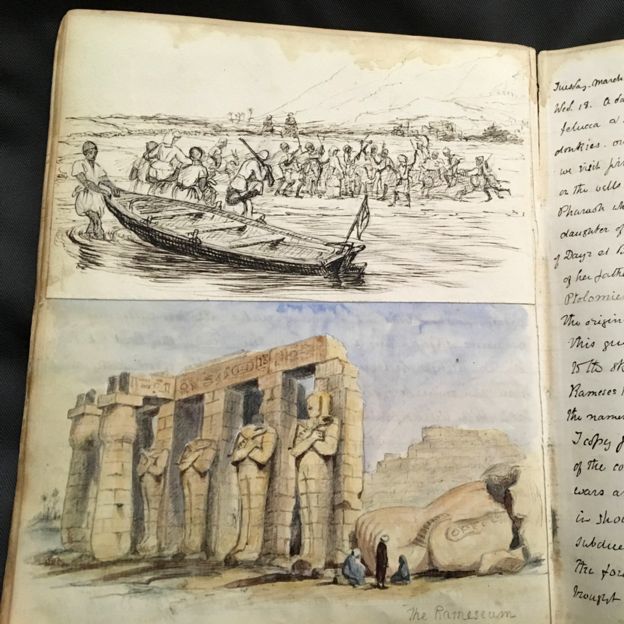 The Rameseum
Tuesday. March
Wed. 18. A da
felucca a
donkies. ou
we visit fir
on the wells
Pharaoh
daughter of
of Dayr el B
of her fathe
Ptolomies
the origin
This gre
to the
Rameses
the names
I copy
of the co
wars a
in sho
subdue
the for
brought